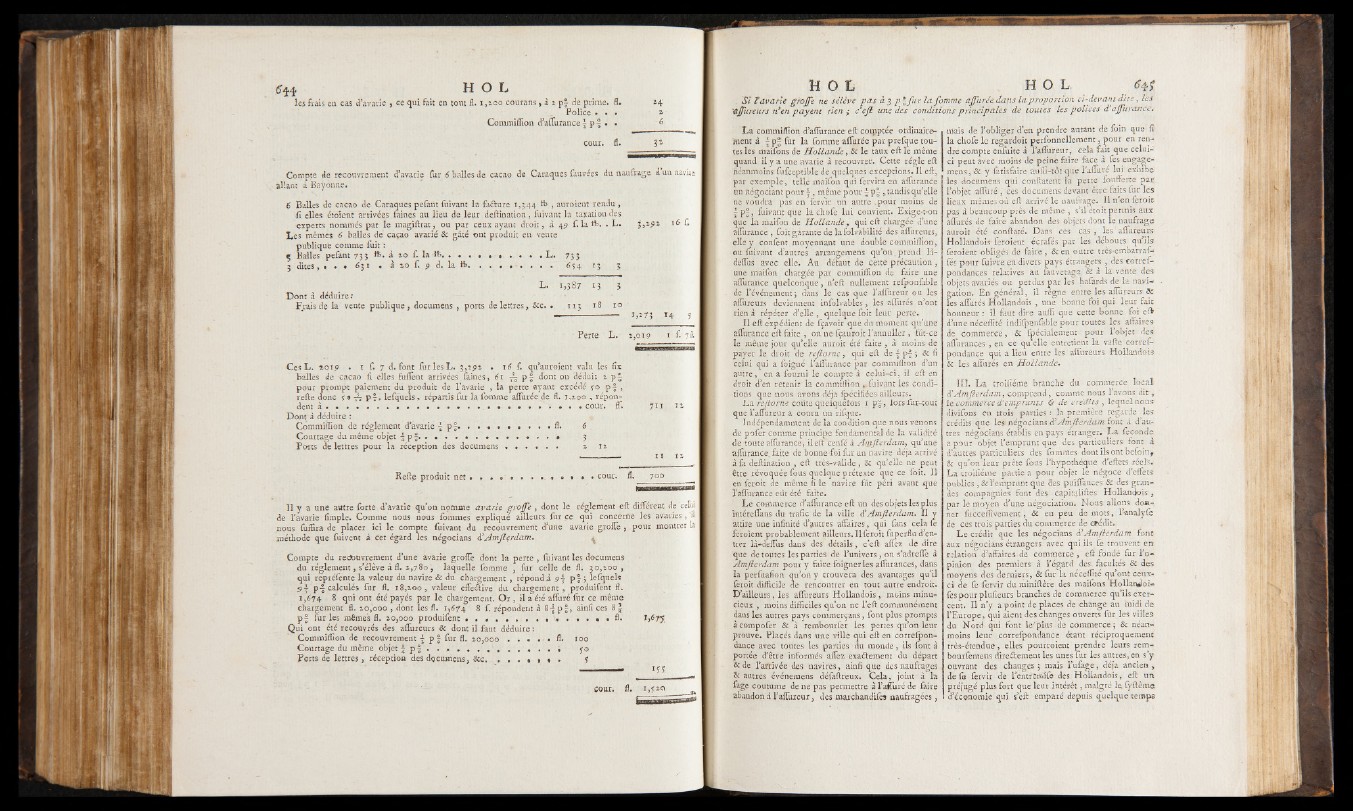 644 H O L
les frais en cas d'avarie, ce qui fait en tout fl. 1,200 courans, à 2 p° de prime. fl. 24
Police . . . 2
Commission d'assurance ½ p° . . 6
cour. fl. 32
Compte de recouvrement d'avarie sur 6 balles de cacao de Caraques sauvées du naufrage d'un navire
allant à Bayonne.
6 Balles de cacao de Caraques pesant suivant la facture 1,344 ℔, auroient rendu,
si elles étoient arrivées saines au lieu de leur destination, suivant la taxation des
experts nommés par le magistrat, ou par ceux ayant droit, à 49 s. la ℔. . L. 3,292 16 s.
Les mêmes 6 balles de cacao avarié & gâté ont produit en vente
publique comme suit :
5 Balles pesant 733 ℔. à 20 s. la ℔. . . . . . . . . . . L. 733
3 dites, . . . 631 . à 20 s. 9 d. la ℔. . . . . . . . . 654 13 3
L. 1,387 13 3
Dont à déduire :
Frais de la vente publique, documens, ports de lettres, &c. . 113 18 10
1,273 14 5
Perte L. 2,019 1 s. 7 d.
Ces L. 2019 . 1 s. 7 d. font sur les L. 3,292 . 16 s. qu'auroient valu les six
balles de cacao si elles fussent arrivées saines, 61 p° dont on déduit 2 p°
pour prompt paiement du produit de l'avarie, la perte ayant excédé 50 p°,
reste donc 59 p°, lesquels, répartis sur la somme assurée de fl. 1,200, répon-
dent à . . . . . . . . . . . . . . . . . cour. fl. 711 12
Dont à déduire :
Commission de réglement d'avarie ½ p° . . . . . . . . . fl. 6
Courtage du même objet ¼ p° . . . . . . . . . . . . . 3
Ports de lettres pour la réception des documens . . . . . . 2 12
11 12
Reste produit net . . . . . . . . . . . . . cour. fl. 700
Il y a une autre sorte d'avarie qu'on nomme avarie grosse, dont le réglement est différent de celui
de l'avarie simple. Comme nous nous sommes expliqué ailleurs sur ce qui concerne les avaries, il
nous suffira de placer ici le compte suivant du recouvrement d'une avarie grosse, pour montrer la
méthode que suivent à cet égard les négocians d'Amsterdam.
Compte du recouvrement d'une avarie grosse dont la perte, suivant les documens
du réglement, s'élève à fl. 2,780, laquelle somme, sur celle de fl. 30,200,
qui représente la valeur du navire & du chargement, répond à 9¼ p° ; lesquels
9¼ p° calculés sur fl. 18,200, valeur effective du chargement, produisent fl.
1,674 8 qui ont été payés par le chargement. Or, il a été assuré sur ce même
chargement fl. 20,000, dont les fl. 1,674 8 s. répondent à p°, ainsi ces
p° sur les mêmes fl. 20,000 produisent . . . . . . . . . . . fl. 1,675
Qui ont été recouvrés des assureurs & dont il faut déduire :
Commission de recouvrement ½ p° sur fl. 20,000 . . . . . . fl. 100
Courtage du même objet ¼ p° . . . . . . . . . . . . . 50
Ports de lettres, réception des documens, &c. . . . . . . . 5
155
cour. fl. 1,520
H O L
Si l'avarie grosse ne s'élève pas à 3 p° sur la somme assurée dans la proportion ci-devant dite, les
assureurs n'en payent rien ; c'est une des conditions principales de toutes les polices d'assurance.
La commission d'assurance est comptée ordinaire-
ment à ½ p° sur la somme assurée par presque tou-
tes les maisons de Hollande, & le taux est le même
quand il y a une avarie à recouvrer. Cette régle est
néanmoins susceptible de quelques exceptions. Il est,
par exemple, telle maison qui servira en assurance
un négociant pour , même pour p°, tandis qu'elle
ne voudra pas en servir un autre pour moins de
½ p°, suivant que la chose lui convient. Exige-t-on
que la maison de Hollande, qui est chargée d'une
assurance, soit garante de la solvabilité des assureurs,
elle y consent moyennant une double commission,
ou suivant d'autres arrangemens qu'on prend là-
dessus avec elle. Au défaut de cette précaution,
une maison chargée par commission de faire une
assurance quelconque, n'est nullement responsable
de l'événement ; dans le cas que l'assureur ou les
assureurs deviennent insolvables, les assurés n'ont
rien à répéter d'elle, quelque soit leur perte.
Il est expédient de sçavoir que du moment qu'une
assurance est faite, on ne sçauroit l'annuller, fût-ce
le même jour qu'elle auroit été faite, à moins de
payer le droit de restorne, qui est de ½ p° ; & si
celui qui a soigné l'assurance par commission d'un
autre, en a fourni le compte à celui-ci, il est en
droit d'en retenir la commission, suivant les condi-
tions que nous avons déja spécifiées ailleurs.
La restorne coûte quelquefois 1 p°, lors sur-tout
que l'assureur a couru un risque.
Indépendamment de la condition que nous venons
de poser comme principe fondamental de la validité
de toute assurance, il est censé à Amsterdam, qu'une
assurance faite de bonne foi sur un navire déja arrivé
à sa destination, est très-valide, & qu'elle ne peut
être révoquée sous quelque prétexte que ce soit. Il
en seroit de même si le navire fût péri avant que
l'assurance eût été faite.
Le commerce d'assurance est un des objets les plus
intéressans du trafic de la ville d'Amsterdam. Il y
attire une infinité d'autres affaires, qui sans cela se
feroient probablement ailleurs. Il seroit superflu d'en-
trer là-dessus dans des détails, c'est assez de dire
que de toutes les parties de l'univers, on s'adresse à
Amsterdam pour y faire soigner les assurances, dans
la persuasion qu'on y trouvera des avantages qu'il
seroit difficile de rencontrer en tout autre endroit.
D'ailleurs, les assureurs Hollandois, moins minu-
cieux, moins difficiles qu'on ne l'est communément
dans les autres pays commerçans, sont plus prompts
à composer & à rembourser les pertes qu'on leur
prouve. Placés dans une ville qui est en correspon-
dance avec toutes les parties du monde, ils sont à
portée d'être informés assez exactement du départ
& de l'arrivée des navires, ainsi que des naufrages
& autres événemens désastreux. Cela, joint à la
sage coutume de ne pas permettre à l'assuré de faire
abandon à l'assureur, des marchandises naufragées,
H O L 645
mais de l'obliger d'en prendre autant de soin que si
la chose le regardoit personnellement, pour en ren-
dre compte ensuite à l'assureur, cela fait que celui-
ci peut avec moins de peine faire face à ses engage-
mens, & y satisfaire aussi-tôt que l'assuré lui exhibe
les documens qui constatent la perte soufferte par
l'objet assuré, ces documens devant être faits sur les
lieux mêmes où est arrivé le naufrage. Il n'en seroit
pas à beaucoup près de même, s'il étoit permis aux
assurés de faire abandon des objets dont le naufrage
auroit été constaté. Dans ces cas, les assureurs
Hollandois seroient écrasés par les débours qu'ils
seroient obligés de faire, & en outre très-embarras-
sés pour suivre en divers pays étrangers, des corres-
pondances relatives au sauvetage & à la vente des
objets avariés ou perdus par les hasards de la navi-
gation. En général, il règne entre les assureurs &
les assurés Hollandois, une bonne foi qui leur fait
honneur : il faut dire aussi que cette bonne foi est
d'une nécessité indispensable pour toutes les affaires
de commerce, & spécialement pour l'objet des
assurances, en ce qu'elle entretient la vaste corres-
pondance qui a lieu entre les assureurs Hollandois
& les assurés en Hollande.
III. La troisième branche du commerce local
d'Amsterdam, comprend, comme nous l'avons dit,
le commerce d'emprunts & de crédits, lequel nous
divisons en trois parties : la première regarde les
crédits que les négocians d'Amsterdam font à d'au-
tres négocians établis en pays étranger. La seconde
a pour objet l'emprunt que des particuliers font à
d'autres particuliers des sommes dont ils ont besoin,
& qu'on leur prête sous l'hypothèque d'effets réels.
La troisième partie a pour objet le négoce d'effets
publics, & l'emprunt que des puissances & des gran-
des compagnies font des capitalistes Hollandois,
par le moyen d'une négociation. Nous allons don-
ner successivement, & en peu de mots, l'analyse
de ces trois parties du commerce de crédit.
Le crédit que les négocians d'Amsterdam font
aux négocians étrangers avec qui ils se trouvent en
relation d'affaires de commerce, est fondé sur l'o-
pinion des premiers à l'égard des facultés & des
moyens des derniers, & sur la nécessité qu'ont ceux-
ci de se servir du ministère des maisons Hollandoi-
ses pour plusieurs branches de commerce qu'ils exer-
cent. Il n'y a point de places de change au midi de
l'Europe, qui aient des changes ouverts sur les villes
du Nord qui font le plus de commerce ; & néan-
moins leur correspondance étant réciproquement
très-étendue, elles pourroient prendre leurs rem-
boursemens directement les unes sur les autres, en s'y
ouvrant des changes ; mais l'usage, déja ancien,
de se servir de l'entremise des Hollandois, est un
préjugé plus fort que leur intérêt, malgré le systême
d'économie qui s'est emparé depuis quelque temps